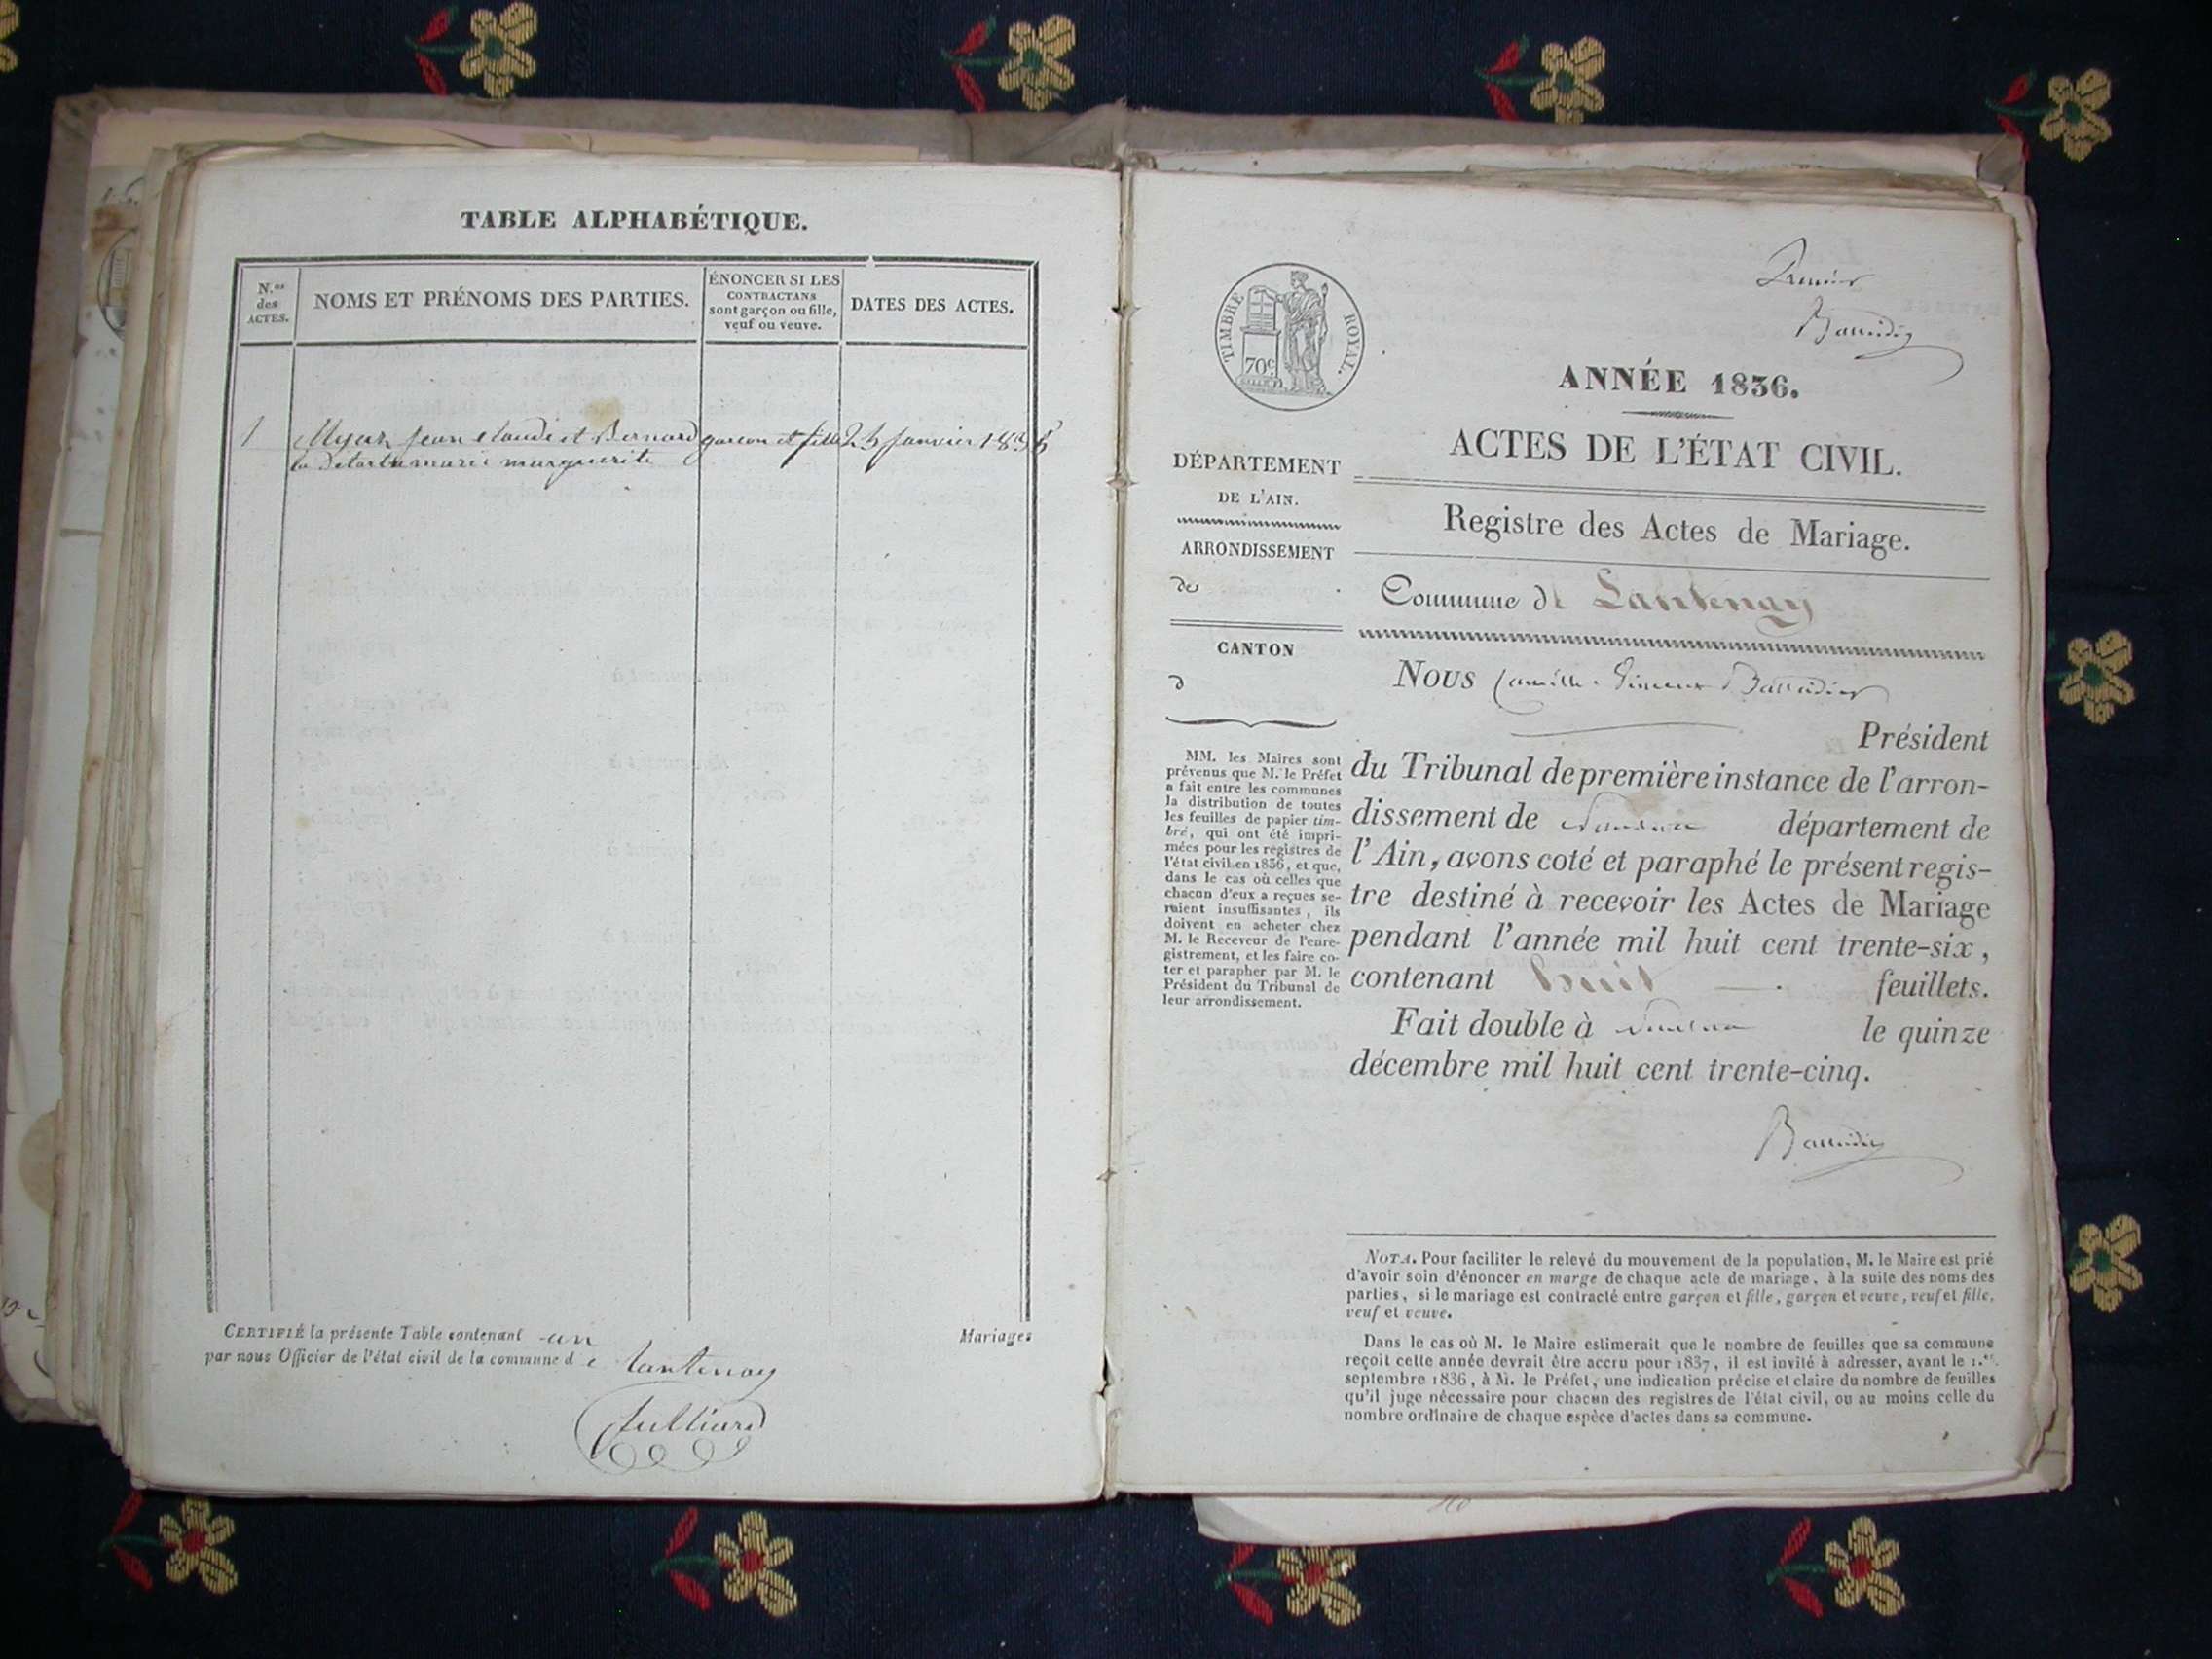 TABLE ALPHABÉTIQUE.
N.os des ACTES.
NOMS ET PRÉNOMS DES PARTIES.
ÉNONCER SI LES
CONTRACTANS
sont garçon ou fille,
veuf ou veuve.
DATES DES ACTES.
1 Jean Claude et Bernard garcon et fille janvier 183
marie marguerite
CERTIFIÉ la présente Table contenant un Mariages
par nous Officier de l'état civil de la commune de Lantenay
Julliard
Premier
TIMBRE ROYAL.
70c.
ANNÉE 1836.
ACTES DE L'ÉTAT CIVIL.
Registre des Actes de Mariage.
DÉPARTEMENT
DE L'AIN.
ARRONDISSEMENT
de
CANTON
d
Commune de Lantenay
MM. les Maires sont
prévenus que M. le Préfet
a fait entre les communes
la distribution de toutes
les feuilles de papier tim-
bré, qui ont été impri-
mées pour les registres de
l'état civil en 1836, et que,
dans le cas où celles que
chacun d'eux a reçues se-
raient insuffisantes, ils
doivent en acheter chez
M. le Receveur de l'enre-
gistrement, et les faire co-
ter et parapher par M. le
Président du Tribunal de
leur arrondissement.
Nous Camille
Président
du Tribunal de première instance de l'arron-
dissement de Nantua département de
l'Ain, avons coté et paraphé le présent regis-
tre destiné à recevoir les Actes de Mariage
pendant l'année mil huit cent trente-six,
contenant huit feuillets.
Fait double à Nantua le quinze
décembre mil huit cent trente-cinq.
NOTA. Pour faciliter le relevé du mouvement de la population, M. le Maire est prié
d'avoir soin d'énoncer en marge de chaque acte de mariage, à la suite des noms des
parties, si le mariage est contracté entre garçon et fille, garçon et veuve, veuf et fille,
veuf et veuve.
Dans le cas où M. le Maire estimerait que le nombre de feuilles que sa commune
reçoit cette année devrait être accru pour 1837, il est invité à adresser, avant le 1.er
septembre 1836, à M. le Préfet, une indication précise et claire du nombre de feuilles
qu'il juge nécessaire pour chacun des registres de l'état civil, ou au moins celle du
nombre ordinaire de chaque espèce d'actes dans sa commune.